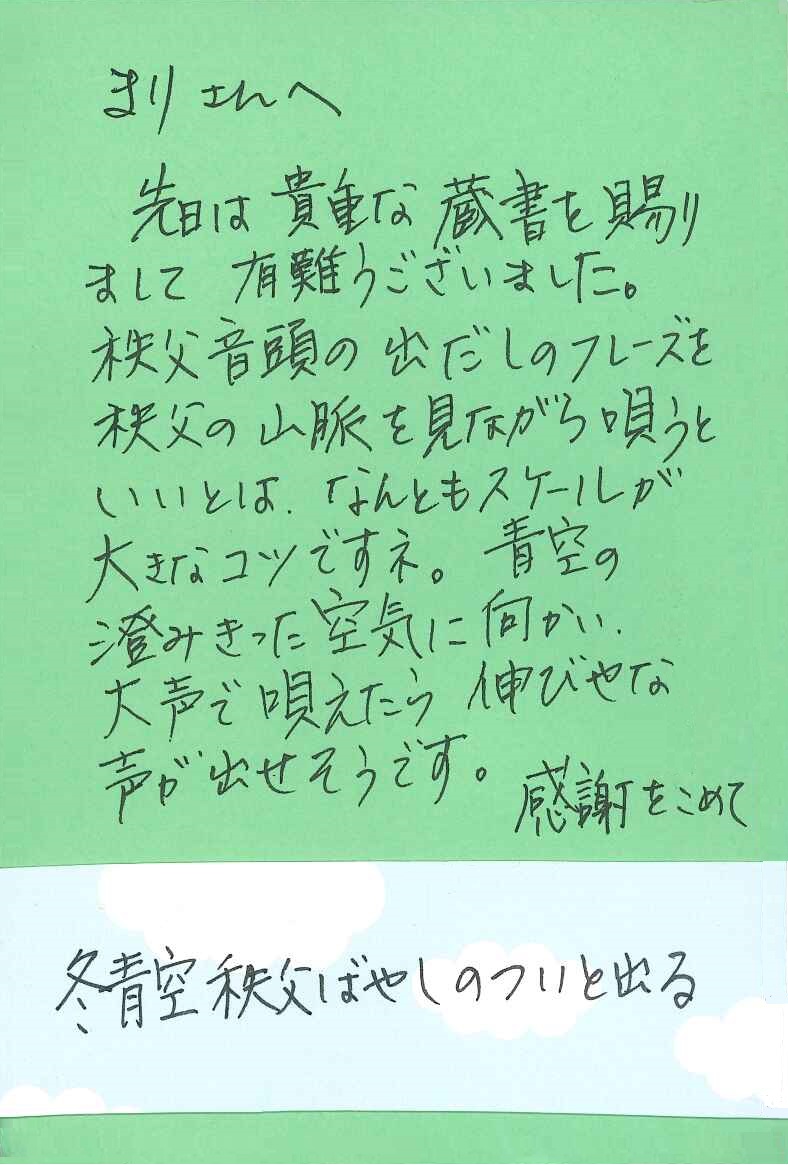 まりさんへ
先日は貴重な蔵書を賜り
まして 有難うございました。
秩父音頭の出だしのフレーズを
秩父の山脈を見ながら唄うと
いいとは、なんともスケールが
大きなコツですネ。青空の
澄みきった空気に向かい、
大声で唄えたら 伸びやな
声が出せそうです。
感謝をこめて
冬青空秩父ばやしのついと出る